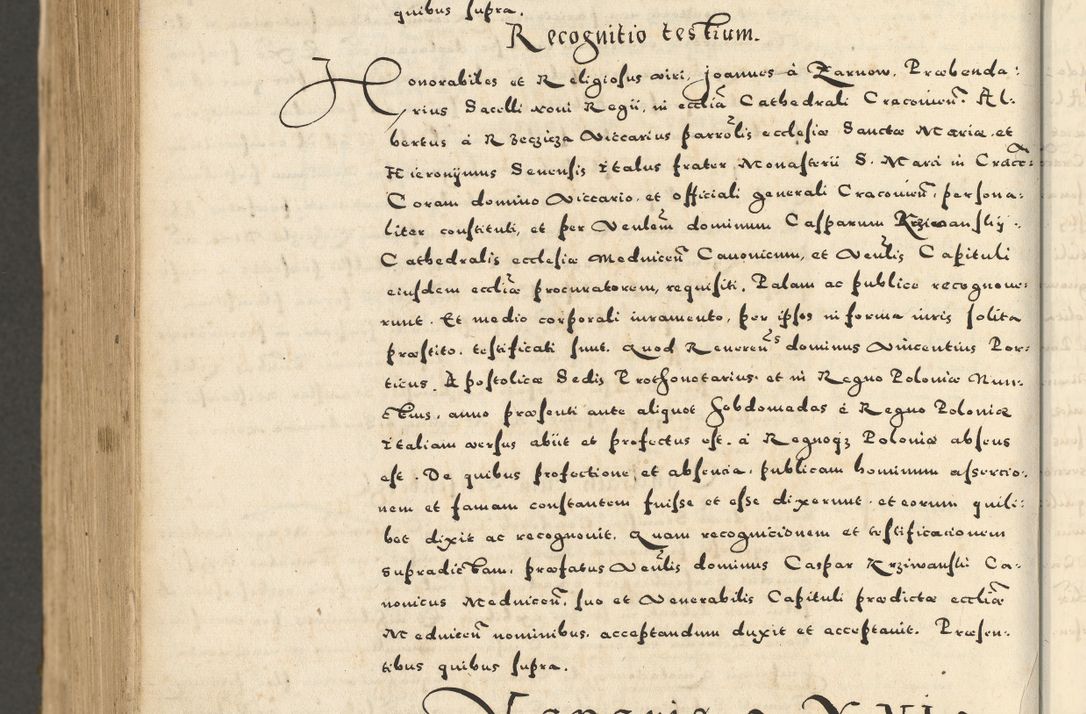 quibus supra.
Recognitio testium.
Honorabiles et Religiosus viri, Joannes à Zarnow, Præbenda:
rius Sacelli novi Regii, in ecclīa Cathedrali Cracovieñ. Al:
bertus à Rzeczicza Viccarius parrolis ecclesiæ Sanctæ Mariæ, et
Hieronymus Senensis Italus frater Monasterii S. Marci in Crac:
Coram domino Viccario, et officiali generali Cracovieñ, persona:
liter constituti, et per Venlem dominum Casparum Krziwanskij:
Cathedralis ecclesiæ Medniceñ Canonicum, et Venlis Capituli
eiusdem eccliæ procuratorem, requisiti, Palam ac publice recognoue:
runt. Et medio corporali iuramento, per ipsos in forma iuris solita
præstito, testificati sunt. Quod Reverens dominus Vincentius Por:
ticus, Apostolicæ Sedis Prothonotarius et in Regno Poloniæ Nun:
tius, anno præsenti ante aliquot hebdomadas è Regno Poloniæ
Italiam versus abiit et profectus est, à Regnoqz Poloniæ absens
est. De quibus profectione, et absencia, publicam hominum assercio:
nem et famam constantem fuisse et esse dixerunt, et eorum quili:
bet dixit ac recognouit. Quam recognicionem et testificacionem
supradictam, præfatus Venlis dominus Caspar Krziwanski Ca:
nonicus Medniceñ, suo et Venerabilis Capituli prædictæ eccliæ
Medniceñ nominibus, acceptandum duxit et acceptauit. Præsen:
tibus quibus supra.